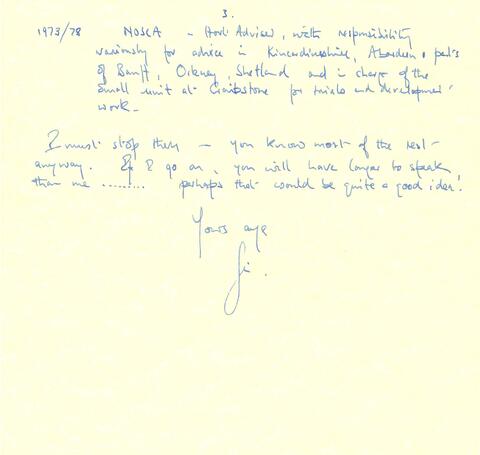 3.
1973/78 NOSCA - Hort Adviser, with responsibility
variously for advice in Kincardineshire, Aberdeen, parts
of Banff, Orkney, Shetland and in charge of the
small unit at Craibstone for trials and development
work.
I must stop there — you know most of the rest
anyway. If I go on, you will have longer to speak
than me ......... perhaps that would be quite a good idea!
Yours aye